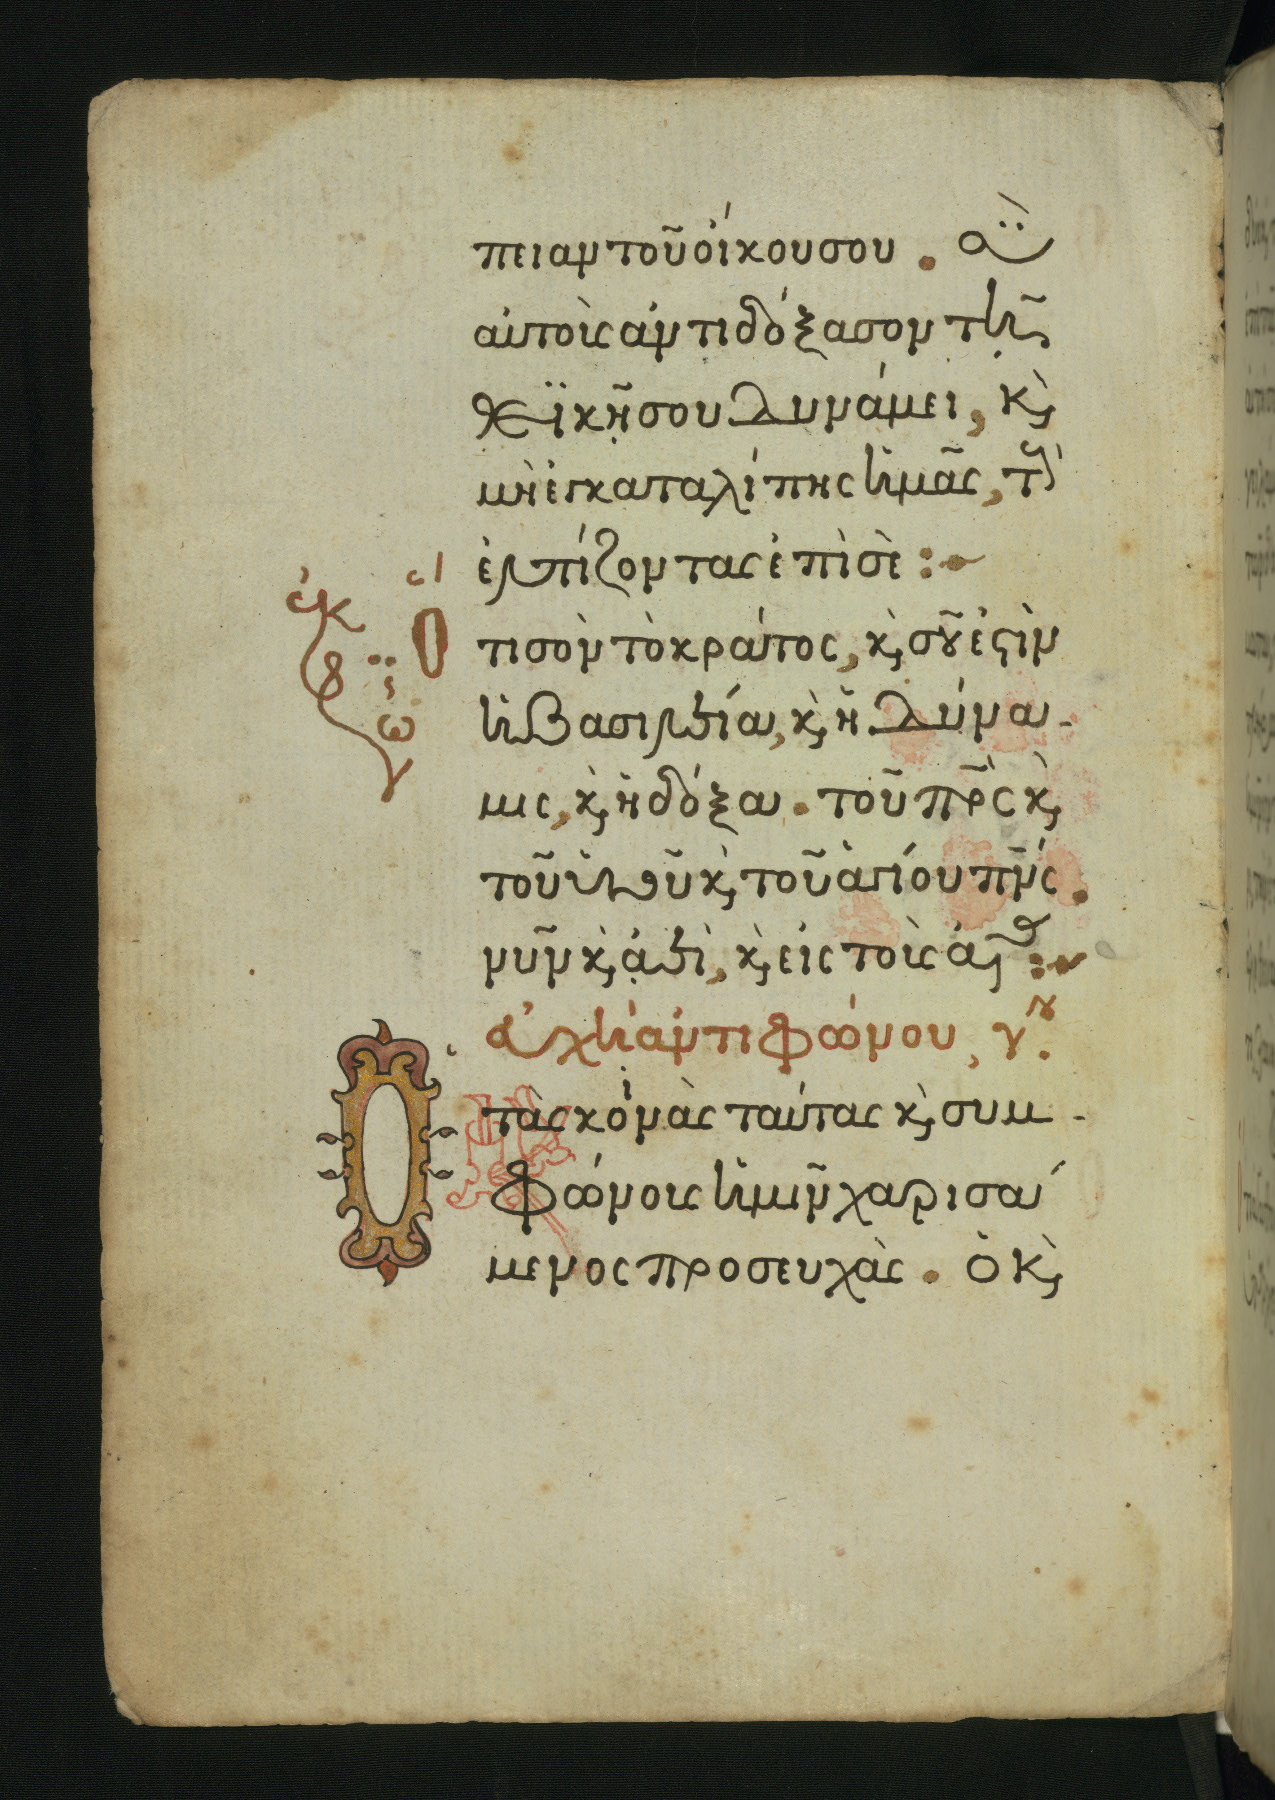 πειαν τοῦ οἴκου σου . σὺ
αὐτοὺς ἀντιδόξασον τῆ
θεϊκῆ σου δυνάμει, κ(αὶ)
μὴ ἐγκαταλίπης ἡμᾶς, τ(οὺς)
ἐλπίζοντας ἐπὶ σὲ :~
ἐκφώ
Ὅ τι σὸν τὸ κράτος, κ(αὶ) σοῦ ἐστὶν
ἡ βασιλεία, κ(αὶ) ἡ δύνα-
μις, κ(αὶ) ἡ δόξα . τοῦ π(ατ)ρ(ὸ)ς κ(αὶ)
τοῦ υἱοῦ κ(αὶ) τοῦ ἁγίου πν(εύματο)ς .
νῦν κ(αὶ) ἀεὶ, κ(αὶ) εἰς τοὺς αἰῶ :~
εὐχὴ ἀντιφώνου, γου .
Ὁ τὰς κοινὰς ταύτας κ(αὶ) συμ-
φώνους ἡμῖν χαρισά
μενος προσευχὰς . ὁ κ(αὶ)